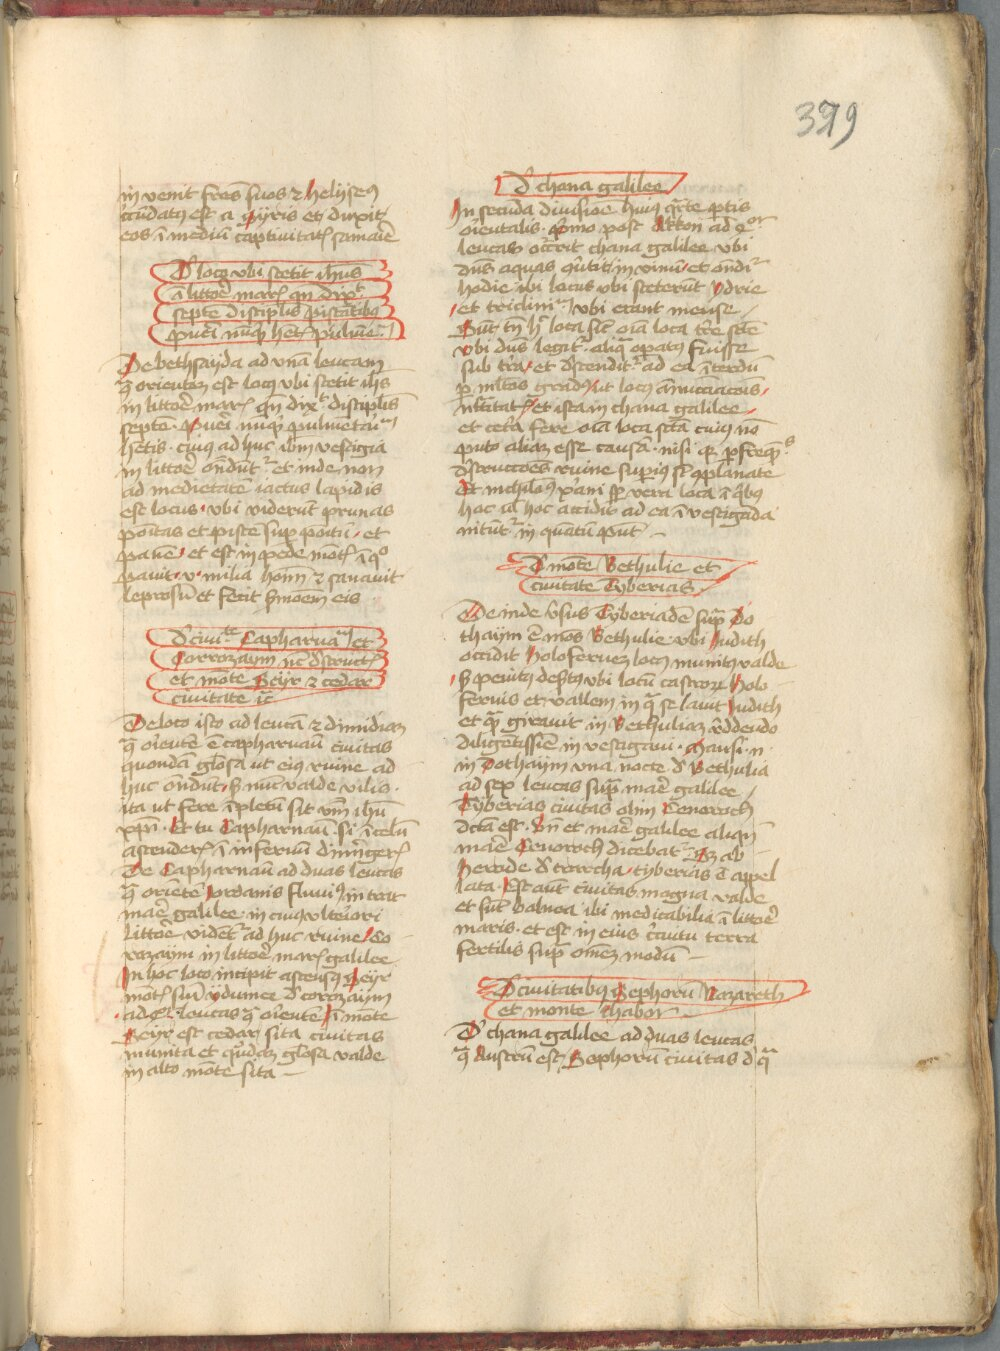 379
in venit fratres suos et helyseus
cundatus est a Syris et duxit
eos in medium captivitatis samarie
De loco ubi stetit ihesus
in littore maris quando dixit
septem discipulis piscantibus
pueri numquid habetis pulmentarium
De bethsayda ad unam leucam
contra orientem est locus ubi stetit ihesus
in littore maris quando dixit discipulis
septem pueri numquid pulmentarium
habetis cuius ad huc ibi vestigia
in littore ondunt et inde non
ad medietatem iactus lapidis
est locus ubi viderunt prunas
positas et piscem superpositum et
panem et est in pede montis in quo
pavit v milia hominum et sanavit
leprosum et fecit sermonem eis
De civitate Capharnaum et
Corrozaym nunc destructis
et monte Seyr et cedar
civitate
De loco isto ad leucam et dimidiam
contra orientem est capharnaum civitas
quondam gloriosa ut eius ruine ad
huc ondunt sed nunc valde vilis
ita ut fere impletum sit verbum ihesu
xpi Et tu Capharnaum si in celum
ascenderis in infernum demergeris
De Capharnaum ad duas leucas
contra orientem Jordanis fluvius intrat
mare galilee in cuius ulteriori
littore videtur ad huc ruine Co
rozaym in littore maris galilee
In hoc loco incipit ascensus Seyr
montis sive ydumee de corozaym
ad leucas contra orientem in monte
Seyr est cedar sita civitas
munita et quedam gloriosa valde
in alto monte sita
De chana galilee
In secunda divisione huius quarte partis
orientalis primo post Accon ad quatuor
leucas occurrit chana galilee ubi
dominus aquas convertit in vinum et ondunt
hodie ibi locus ubi steterunt ydrie
et triclinium ubi erant mense
Sunt tamen hec loca sicut omnia loca terre sancte
ubi dominus legitur aliquid operatus fuisse
sub terra et descenditur ad ea interdum
per multos gradus ut locus annunciacionis
nativitatis et ista in chana galilee
et cetera fere omnia loca sancta cuius non
puto aliam esse causam nisi quia per frequentes
destructiones ruine superius sunt complanate
Et nichilominus xpiani semper vera loca in quibus
hoc vel hoc accidit ad ea investiganda
nituntur in quantum possunt
De monte Bethulie et
civitate Tyberias
De inde versus Tyberiadem supra Do
thaym est mons Bethulie ubi Judith
occidit holofernem locus munitus valde
sed penitus desertus ubi locum castrorum holo
fernis et vallem in qua se lavit Judith
et quam giravit in Bethuliam redeundo
diligentissime investigavi Mansi enim
in Dothaym una nocte de Bethulia
ad sex leucas supra mare galilee
Tyberias civitas olim Cenoreth
dicta est unde et mare galilee aliquando
mare Cenoreth dicebatur Sed ab
herode de tetrarcha tyberias est appel
lata Est autem civitas magna valde
et sunt balnea ibi medicabilia in littore
maris et est in eius circuitu terra
fertilis supra omnem modum
De civitatibus Sephorum Nazareth
et monte thabor
De chana galilee ad duas leucas
contra Austrum est Sephorum civitas de qua